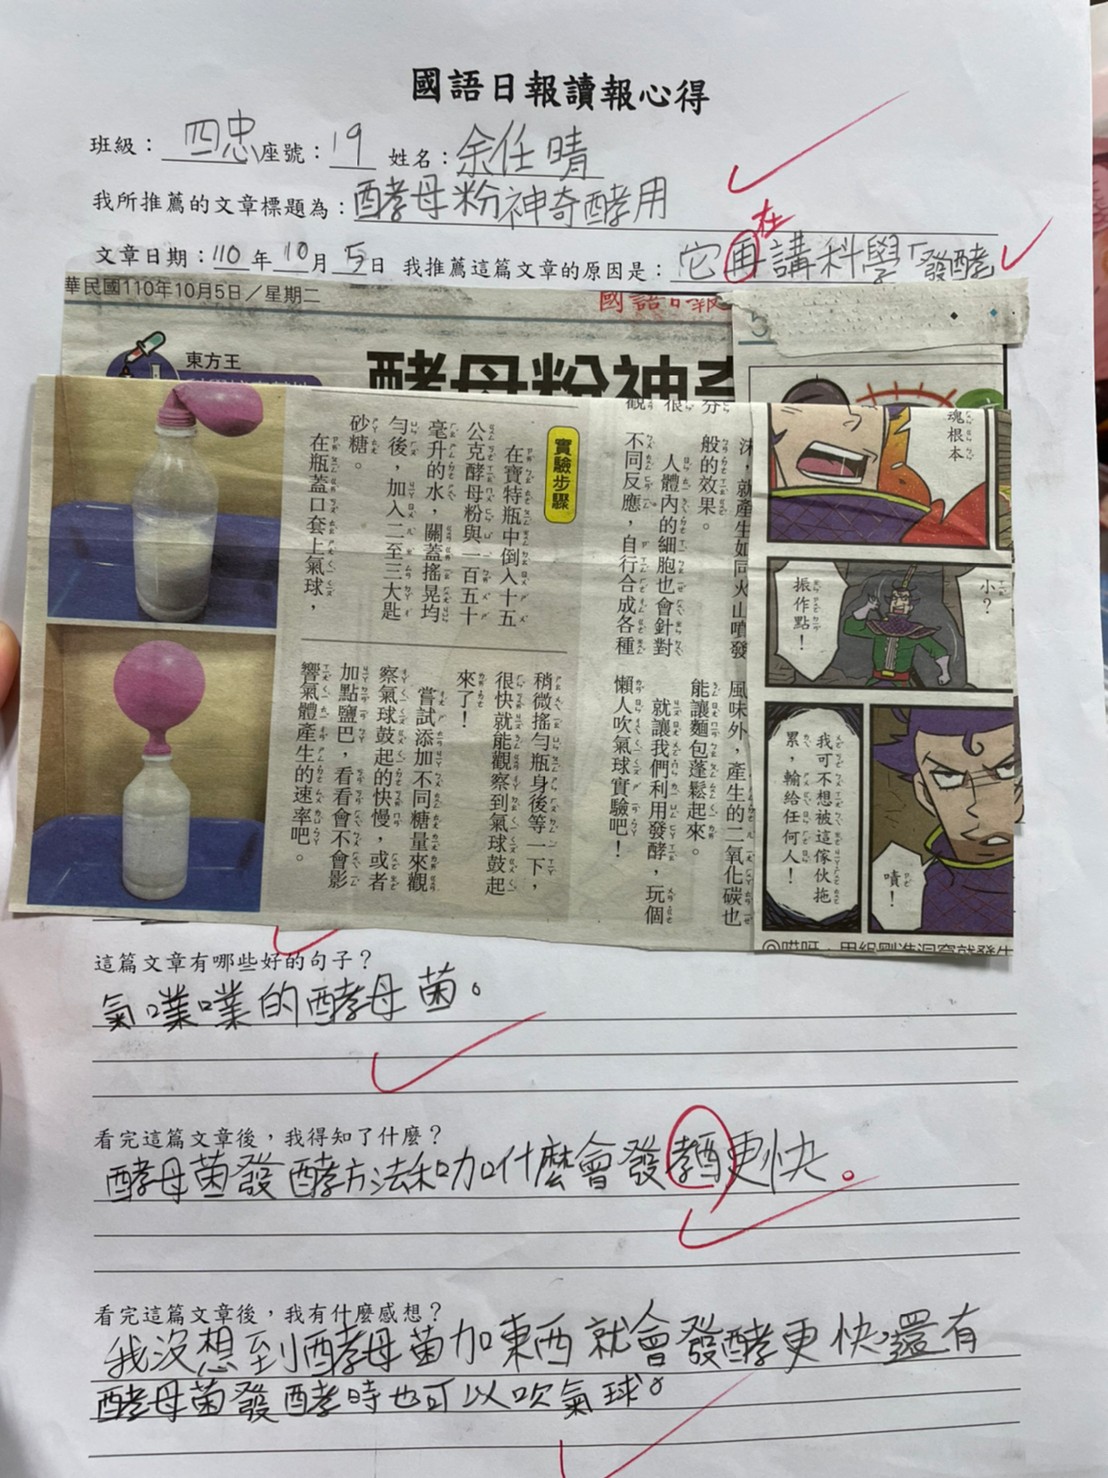 國語日報讀報心得
班級：四忠座號：19 姓名：余任晴
我所推薦的文章標題為：酵母粉神奇酵用
在
文章日期：110年10月5日 我推薦這篇文章的原因是：它再講科學「發酵
華民國110年10月5日／星期二
國語日報
東方王
酵母粉神奇
魂根本
小？
振作點！
我可不想被這傢伙拖
累，輸給任何人！
嘖！
沫，就產生如同火山噴發
般的效果。
人體內的細胞也會針對
不同反應，自行合成各種
風味外，產生的二氧化碳也
能讓麵包蓬鬆起來。
就讓我們利用發酵，玩個
懶人吹氣球實驗吧！
實驗步驟
在寶特瓶中倒入十五
公克酵母粉與一百五十
毫升的水，關蓋搖晃均
勻後，加入二至三大匙
砂糖。
在瓶蓋口套上氣球，
稍微搖勻瓶身後等一下，
很快就能觀察到氣球鼓起
來了！
嘗試添加不同糖量來觀
察氣球鼓起的快慢，或者
加點鹽巴，看看會不會影
響氣體產生的速率吧。
這篇文章有哪些好的句子？
氣噗噗的酵母菌。
看完這篇文章後，我得知了什麼？
酵母菌發酵方法和加什麼會發酵更快。
看完這篇文章後，我有什麼感想？
我沒想到酵母菌加東西就會發酵更快還有
酵母菌發酵時也可以吹氣球。